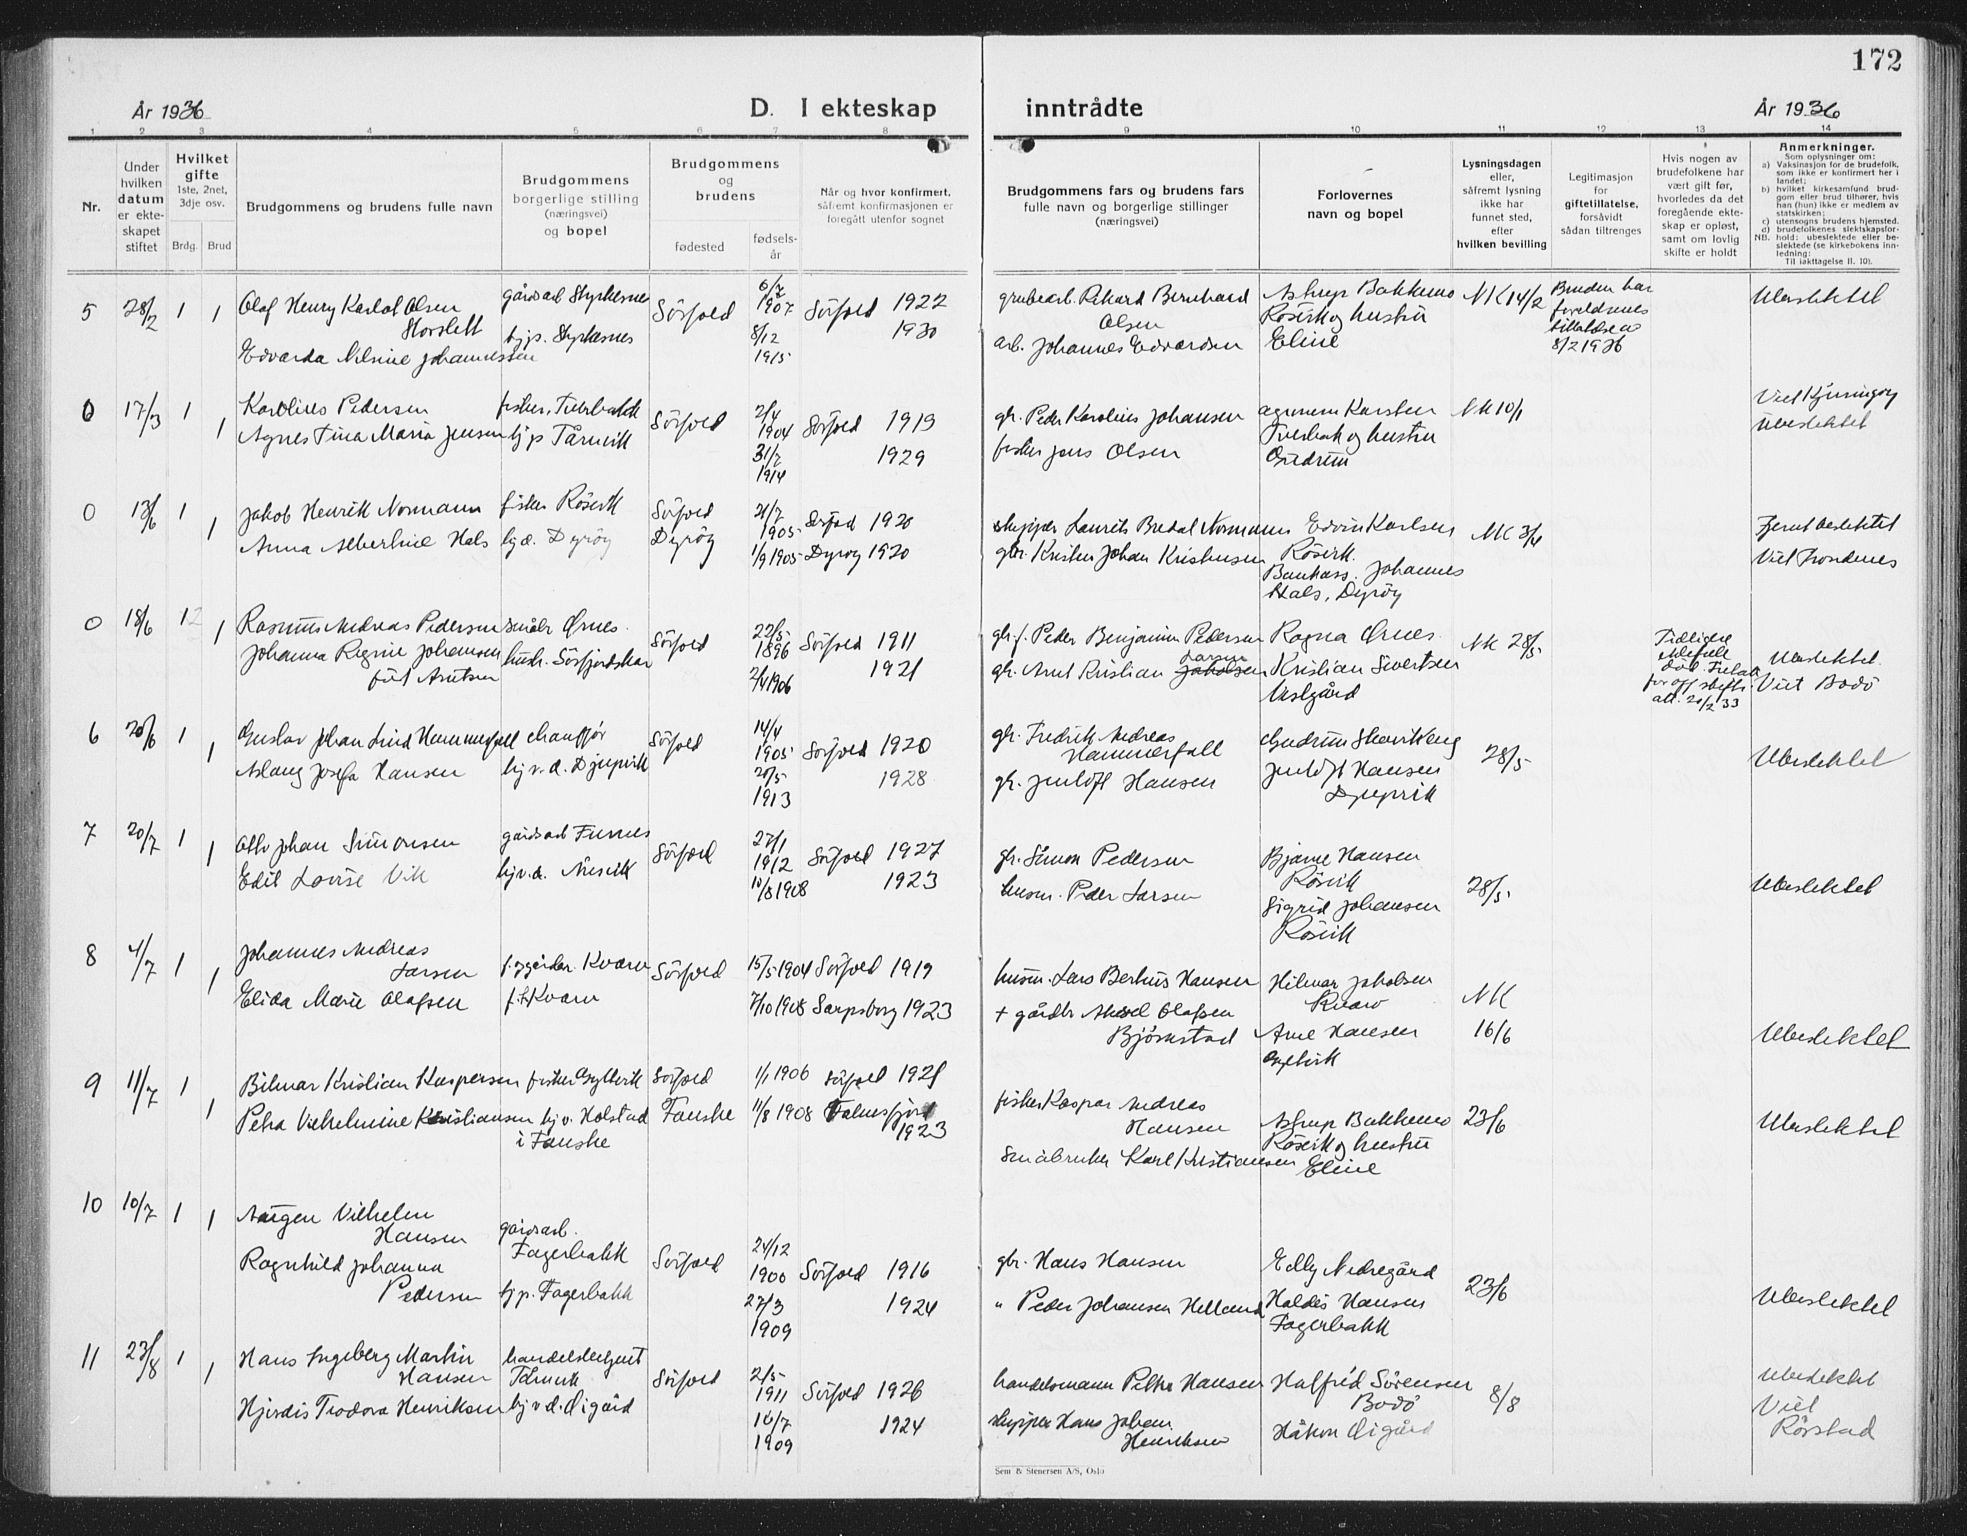 172
År 1936
D. I ekteskap inntrådte
År 1936
1 2 3 4 5 6 7 8 9 10 11 12 13 14
Nr.
Under
hvilken
datum
er ekte-
skapet
stiftet
Hvilket
gifte
1ste, 2net,
3dje osv.
Brdg. Brud
Brudgommens og brudens fulle navn
Brudgommens
borgerlige stilling
(næringsvei)
og bopel
Brudgommens
og
brudens
fødested
fødsels-
år
Når og hvor konfirmert,
såfremt konfirmasjonen er
foregått utenfor sognet
Brudgommens fars og brudens fars
fulle navn og borgerlige stillinger
(næringsvei)
Forlovernes
navn og bopel
Lysningsdagen
eller,
såfremt lysning
ikke har
funnet sted,
efter
hvilken bevilling
Legitimasjon
for
giftetillatelse,
forsåvidt
sådan tiltrenges
Hvis nogen av
brudefolkene har
vært gift før,
hvorledes da det
foregående ekte-
skap er opløst,
samt om lovlig
skifte er holdt
Anmerkninger.
Som oplysninger om:
a) Vaksinasjon for de brudefolk,
som ikke er konfirmert her i
landet;
b) hvilket kirkesamfund brud-
gom eller brud tilhører, hvis
han (hun) ikke er medlem av
statskirken;
c) utensogns brudens hjemsted.
d) brudefolkenes slektskapsfor-
NB. hold: ubeslektede eller be-
slektede (se kirkebokens inn-
ledning:
Til iakttagelse II. 10).
5 28/2 1 1 Olaf Henry Karlot Olsen
Horslett
Edvarda Nilsine Johannessen
gårdsarb Styrkesnes
hjp. Styrkesnes
Sörfold
6/7
1907
8/12
1915
Sörfold 1922
1930
grubearb. Rikard Bernhard
Olsen
arb. Johannes Edvardsen
Astrup Bakkemo
Rösvik og hustru
Eline
NK 14/2
Bruden har
foreldrenes
tillatelse av
8/2 1936
Ubeslektet
0 17/3 1 1 Karolius Pedersen
Agnes Tina Maria Jensen
fisker, Tverbakk
hjp Tårnvik
Sörfold
2/4
1904
31/7
1914
Sörfold 1919
1929
gbr. Peder Karolius Johansen
fisker Jens Olsen
agronom Karsten
Tverbak og hustru
Gudrun
NK 10/1
Viet Kjerringøy
Ubeslektet
0 13/6 1 1 Jakob Henrik Normann
Anna Albertine Hals
fisker Rösvik
hj.d. Dyröy
Sörfold
Dyröy
21/7
1905
1/9 1905
Sörfold 1920
Dyröy 1920
skipper Laurits Bredal Normann
gbr. Kristen Johan Kristensen
Edvin Karlsen
Rösvik.
Bankass. Johannes
Hals, Dyröy
NK 3/4
Fjernt beslektet
Viet Trondenes
0 18/6 12 1 Rasmus Andreas Pedersen
Johanna Regine Johansen
föt Arntsen
småbr Ørnes.
hush. Sörfjordskar
Sörfold
22/5
1896
2/4 1906
Sörfold 1911
1921
gbr. f. Peder Benjamin Pedersen
gbr. Arnt Kristian Larsen
Ragna Ørnes.
Kristian Sivertsen
Vestgård
NK 28/5
Tidligere
död.
for off skifte.
att. 20/2 33
Ubeslektet.
Viet Bodö
6 20/6 1 1 Gustav Johan Lind Hammerfall
Aslaug Josefa Hansen
chauffør
hj v. d. Djupvik
Sörfold
14/4
1905
20/5
1913
Sörfold 1920
1928
gbr. Fredrik Andreas
Hammerfall
gbr. Jentoft Hansen
Gudrun Skarikeng
Jentoft Hansen
Djupvik
28/5
Ubeslektet
7 20/7 1 1 Otto Johan Simonsen
Edit Lovise Vik
gårdsarb Furnes
hj v.d. Nesvik
Sörfold
27/1
1912
10/8 1908
Sörfold 1927
1923
gbr. Simon Pedersen
husm. Peder Larsen
Bjarne Hansen
Rösvik
Sigrid Johansen
Rösvik
28/5
Ubeslektet
8 4/7 1 1 Johannes Andreas
Larsen
Elida Marie Olafsen
Kvarv
Kvarv
Sörfold
15/5 1904
7/10 1908
Sörfold 1919
Sarpsborg 1923
husm. Lars Berkus Hansen
+ gårdbr Aksel Olafsen
Bjørnstad
Hilmar Jakobsen
Kvarv
Arne Hansen
Gyltvik
NK
16/6
Ubeslektet
9 11/7 1 1 Bilmar Kristian Kaspersen
Petra Vilhelmine Kristiansen
fisker Gyltvik
hj v. Holstad
i Fauske
Sörfold
Fauske
1/1 1906
11/8 1908
Sörfold 1921
Valnesfjord
1923
fisker Kaspar Andreas
Hansen
Småbruker Karl Kristiansen
Astrup Bakkemo
Rösvik og hustru
Eline
23/6
Ubeslektet
10 10/7 1 1 Aagen Vilhelm
Hansen
Ragnhild Johanna
Pedersen
gårdsarb.
Fagerbakk
hjp. Fagerbakk
Sörfold
24/12
1900
27/3
1909
Sörfold 1916
1924
gbr. Hans Hansen
" Peder Johansen Helland
Edly Nedregård
Haldis Hansen
Fagerbakk
23/6
Ubeslektet
11 23/8 1 1 Hans Ingeberg Martin
Hansen
Hjördis Teodora Henriksen
handelsbetjent
Tårnvik
hj v d. Øigård
Sörfold
2/5
1911
16/7
1909
Sörfold 1926
1924
handelsmann Petter Hansen
skipper Hans Johan
Henriksen
Halfrid Sörensen
Bodö
Håkon Øigård
8/8
Ubeslektet
Viet
Rörstad
Sem & Stenersen A/S, Oslo